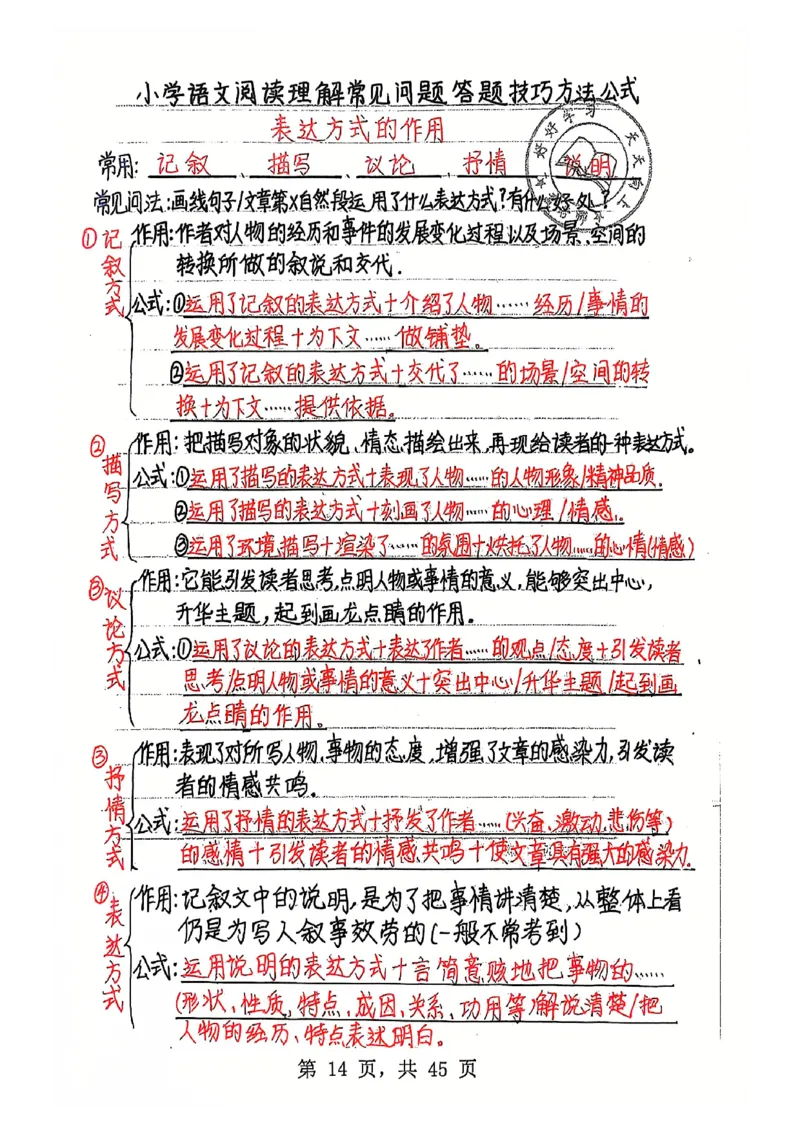 小学语文阅读理解常见问题答题技巧方法公式
表达方式的作用
常用: 记叙、描写、议论、抒情、说明
好好学习 天天向上
常见问法:画线句子/文章第X自然段运用了什么表达方式?有什么好处?
①记叙方式
作用:作者对人物的经历和事件的发展变化过程以及场景、空间的
转换所做的叙说和交代.
公式:①运用了记叙的表达方式+介绍了人物……经历/事情的
发展变化过程+为下文……做铺垫。
②运用了记叙的表达方式+交代了……的场景/空间的转
换+为下文……提供依据。
②描写方式
作用:把描写对象的状貌、情态描绘出来,再现给读者的一种表达方式。
公式:①运用了描写的表达方式+表现了人物……的人物形象/精神品质.
②运用了描写的表达方式+刻画了人物……的心理/情感.
③运用了环境描写+渲染了……的氛围+烘托了人物……的心情(情感)
③议论方式
作用:它能引发读者思考,点明人物或事情的意义,能够突出中心,
升华主题,起到画龙点睛的作用.
公式:①运用了议论的表达方式+表达了作者……的观点/态度+引发读者
思考/点明人物或事情的意义+突出中心/升华主题/起到画
龙点睛的作用。
③抒情方式
作用:表现了对所写人物、事物的态度,增强了文章的感染力,引发读
者的情感共鸣.
公式:运用了抒情的表达方式+抒发了作者……(兴奋、激动、悲伤等)
的感情+引发读者的情感共鸣+使文章具有强大的感染力.
④表达方式
作用:记叙文中的说明,是为了把事情讲清楚,从整体上看
仍是为写人叙事效劳的(一般不常考到)
公式:运用说明的表达方式+言简意赅地把事物的……
(形状、性质、特点、成因、关系、功用等)解说清楚/把
人物的经历、特点表述明白。
第 14 页，共 45 页